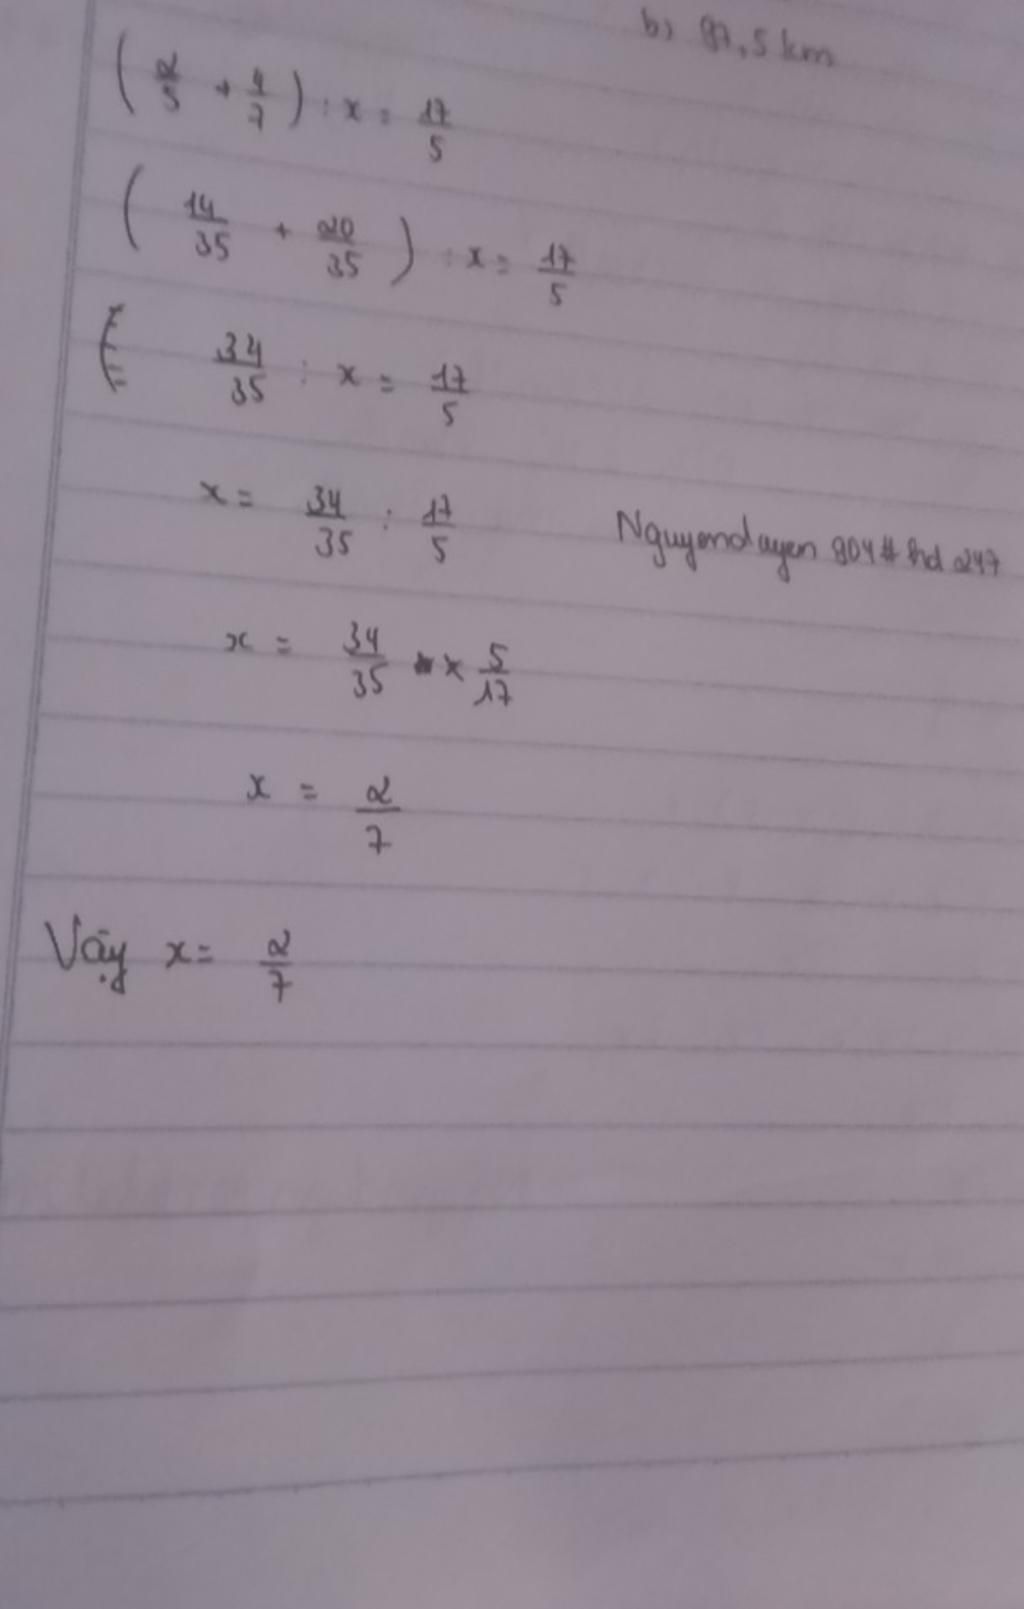 b) 97,5 km
(2/5 + 4/7) : x = 17/5
(14/35 + 20/35) : x = 17/5
34/35 : x = 17/5
x = 34/35 : 17/5
Nguyenduyen904#hd247
x = 34/35 x 5/17
x = 2/7
Vậy x = 2/7